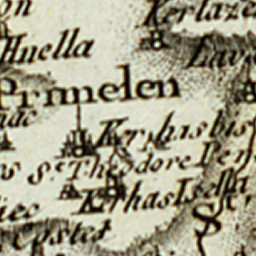 on
Kerlaze
Huella
Lav
Primelen
Kerhisbis
St Theodore Pen
KrhasIsella
iec
Costet